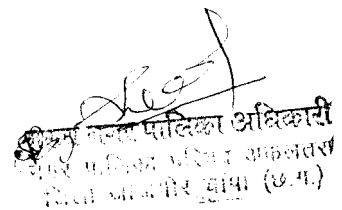 नगर पालिका अधिकारी
नगर पालिका परिषद अकलतरा
जिला जांजगीर चांपा (छ.ग.)